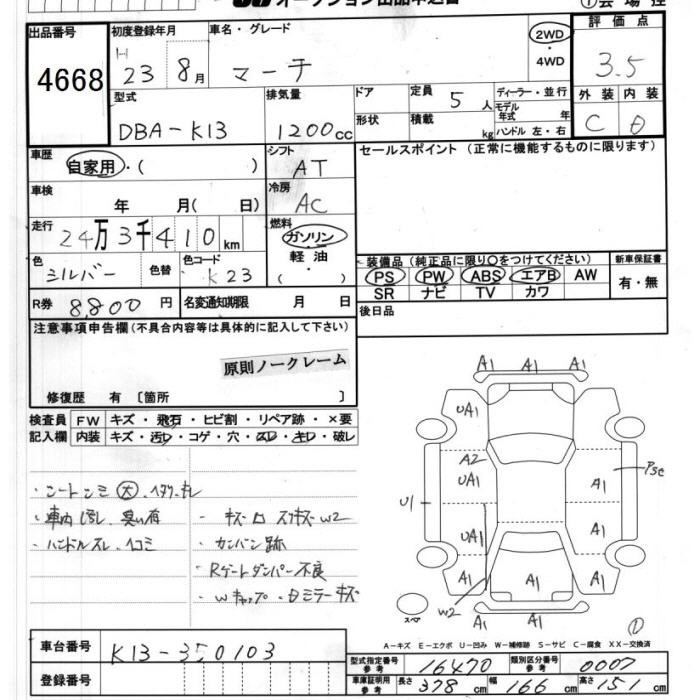 出品番号
4668
初度登録年月
H
23 8月
車名・グレード
マーチ
2WD
・
4WD
評価点
3.5
外装 内装
C D
型式
DBA-K13
排気量
1200cc
ドア
形状
定員 5人
積載 kg
ディーラー・並行
モデル
年式 年
ハンドル 左・右
車歴
自家用・( )
シフト
AT
車検
年 月( 日)
冷房
AC
セールスポイント (正常に機能するものに限ります)
走行
24万3千410km
燃料
ガソリン
軽油
・( )
色
シルバー
色替
色コード
K23
装備品 (純正品に限り○をつけてください)
PS PW ABS エアB AW
SR ナビ TV カワ
新車保証書
有・無
R券 8,800 円
名変通知期限 月 日
後日品
注意事項申告欄 (不具合内容等は具体的に記入して下さい)
原則ノークレーム
修復歴 有 [箇所 ]
検査員
記入欄
FW キズ・飛石・ヒビ割・リペア跡・×要
内装 キズ・汚レ・コゲ・穴・スレ・キレ・破レ
・シートシミ 大・ヘタリ・キレ
・車内汚レ、臭い有
・ハンドルスレ、ヘコミ
・カンバン跡
・Rゲートダンパー不良
A1 A1 A1
UA1 A1
A2
UA1
A1
U1
UA1
A1
A1 A1 A1
W2
A1 A1 A1
スペア
A-キズ E-エクボ U-凹み W-補修跡 S-サビ C-腐食 XX-交換済
車台番号
K13-350103
登録番号
型式指定番号
参考
16470
類別区分番号
参考
0007
車庫証明用
参考
長さ 378 cm
幅 166 cm
高さ 151 cm